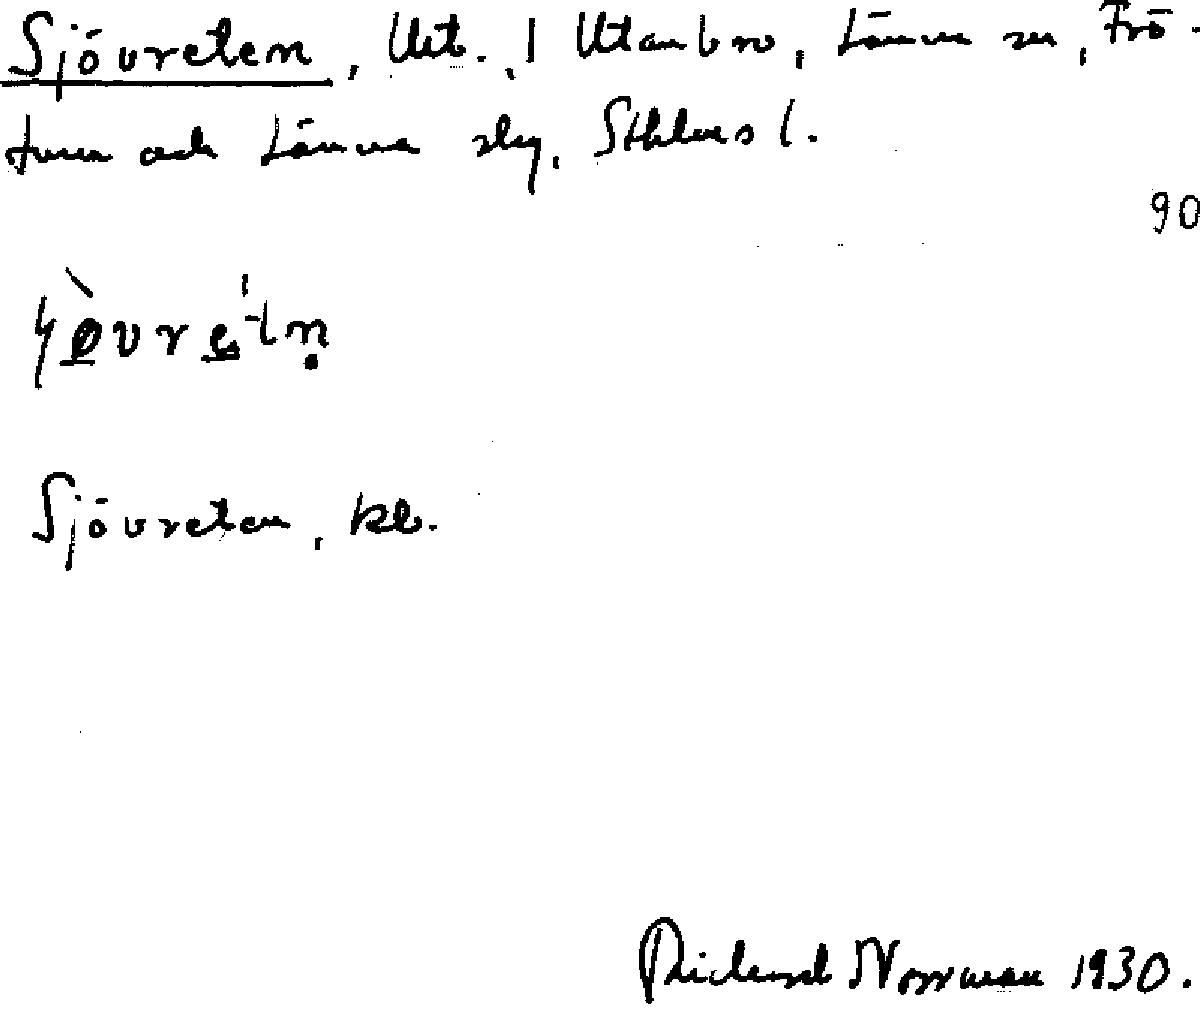 Sjövreten, Urt., 1 Utanbro, Länna sn, Frö-
tuna och Länna slg, Sthlms l.
90
Sjövreten, kb.
Richard Norrman 1930.